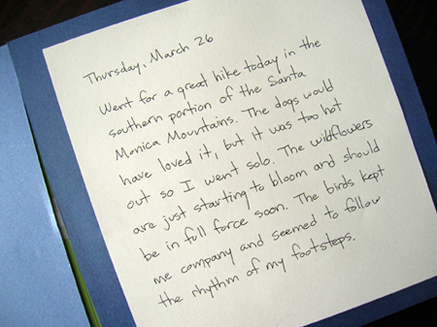 Thursday, March 26
Went for a great hike today in the
southern portion of the Santa
Monica Mountains. The dogs would
have loved it, but it was too hot
out so I went solo. The wildflowers
are just starting to bloom and should
be in full force soon. The birds kept
me company and seemed to follow
the rhythm of my footsteps.